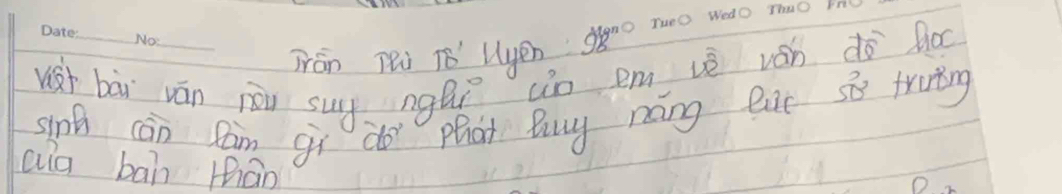 Date: No: Mon Tue Wed Thu Fri
Trần Thị Tố Uyên 98
Viết bài văn nêu suy nghĩ của em về vấn đề học
sinh cần làm gì để phát huy năng lực sở trường
của bản thân